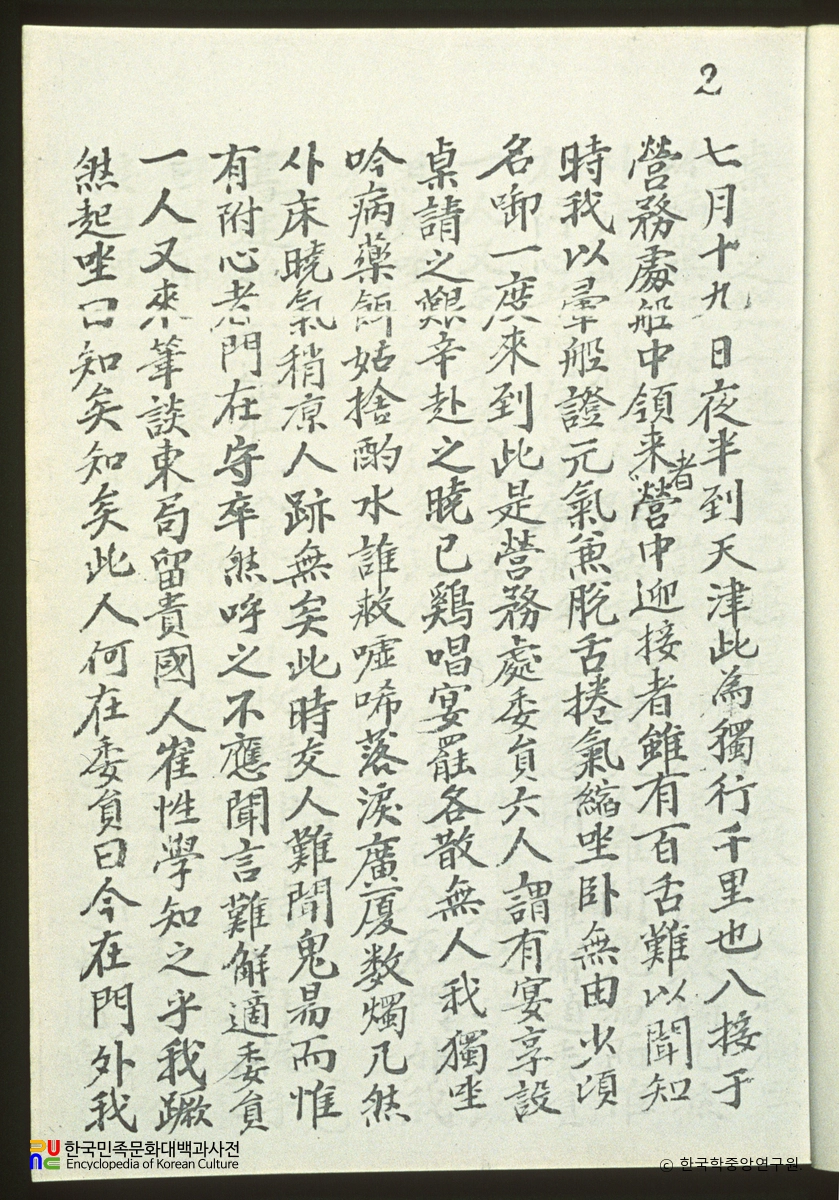 2
七月十九日夜半到天津此為獨行千里也八接于
營務處船中領来者營中迎接者雖有百舌難以聞知
時我以暈船證元氣兼脫舌捲氣縮坐卧無由少頃
名啣一度來到此是營務處委員六人謂有宴享設
桌請之艱辛赴之曉已鷄唱宴罷各散無人我獨坐
吟病藥餌姑捨酌水誰救噓唏落淚廣廈数燭兀然
仆床曉氣稍凉人跡無矣此時交人難聞鬼易而惟
有附心老門在守卒然呼之不應聞言難解適委員
一人又來筆談東局留貴國人崔性學知之乎我蹶
然起坐曰知矣知矣此人何在委員曰今在門外我
한국민족문화대백과사전
Encyclopedia of Korean Culture
© 한국학중앙연구원